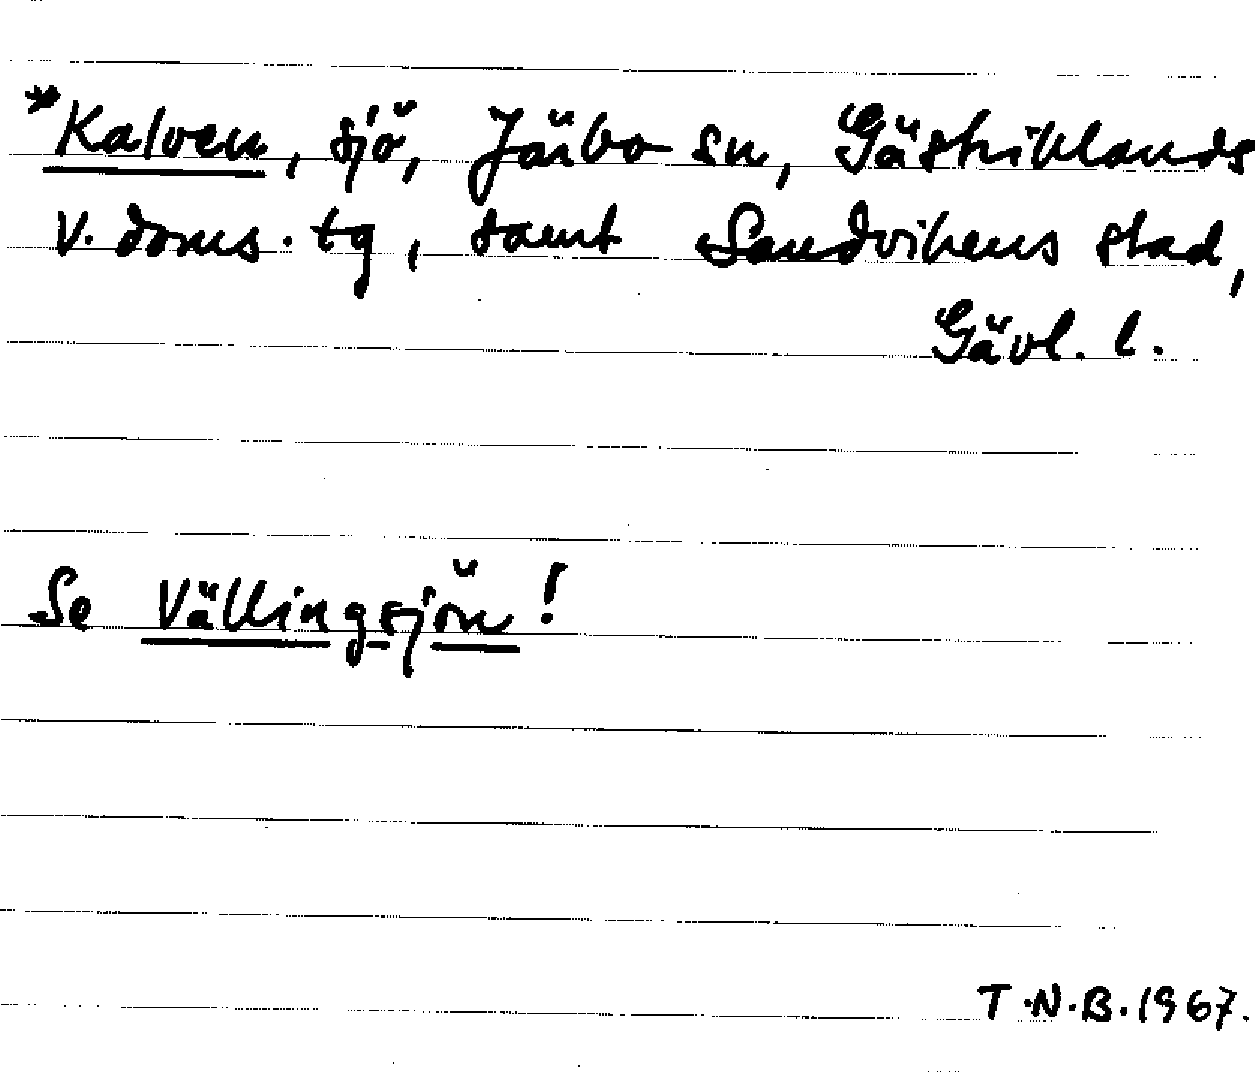 *Kalven, sjö, Järbo sn, Gästriklands
V. doms. tg, samt Sandvikens stad,
Gävl. l.
Se Vällingsjön!
T.N.B. 1967.